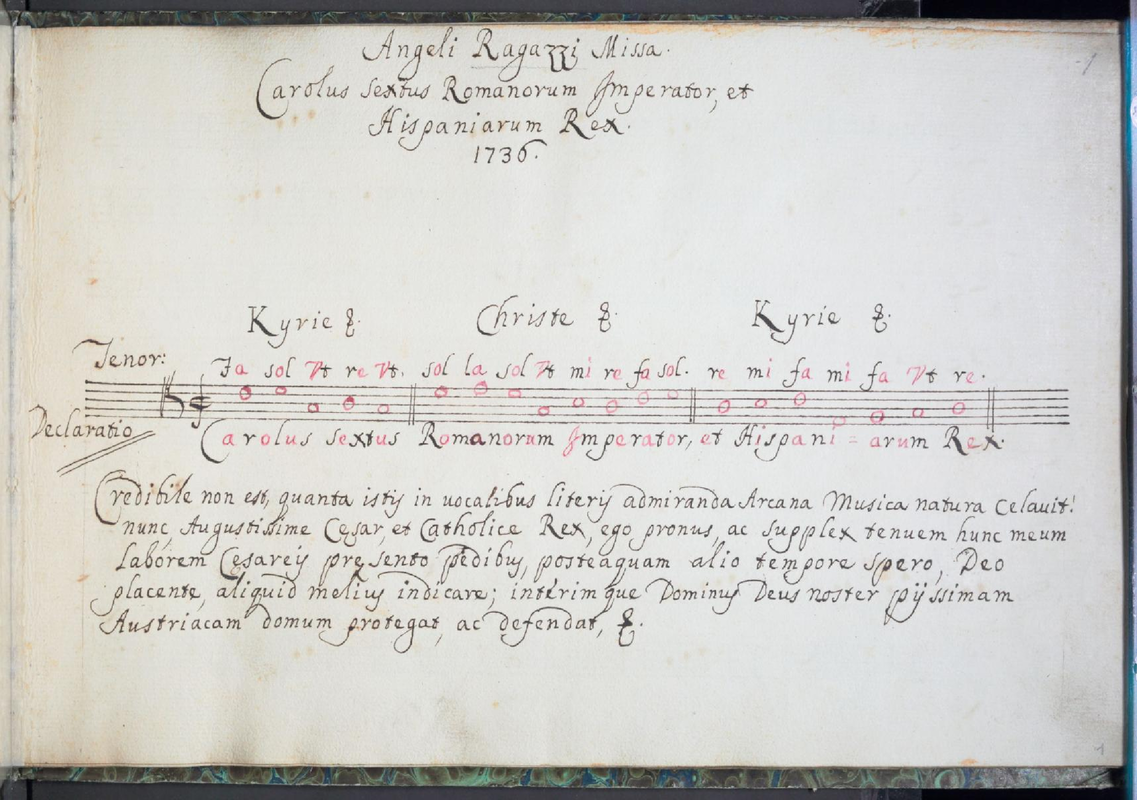 Angeli Ragazzi Missa.
Carolus Sextus Romanorum Imperator, et
Hispaniarum Rex.
1736.
1
Kyrie &. Christe &. Kyrie &.
Tenor: Fa sol Vt re Vt. sol la sol Vt mi re fa sol. re mi fa mi fa Vt re.
Declaratio Carolus Sextus Romanorum Imperator, et Hispani = arum Rex.
Credibile non est, quanta istis in uocalibus literis admiranda Arcana Musica natura celauit!
nunc, Augustissime Cęsar, et Catholice Rex, ego pronus, ac supplex tenuem hunc meum
Laborem Cęsareis pręsento pedibus, posteaquam alio tempore spero, Deo
placente, aliquid melius indicare; interimque Dominus Deus noster pijssimam
Austriacam domum protegat, ac defendat, &.
1